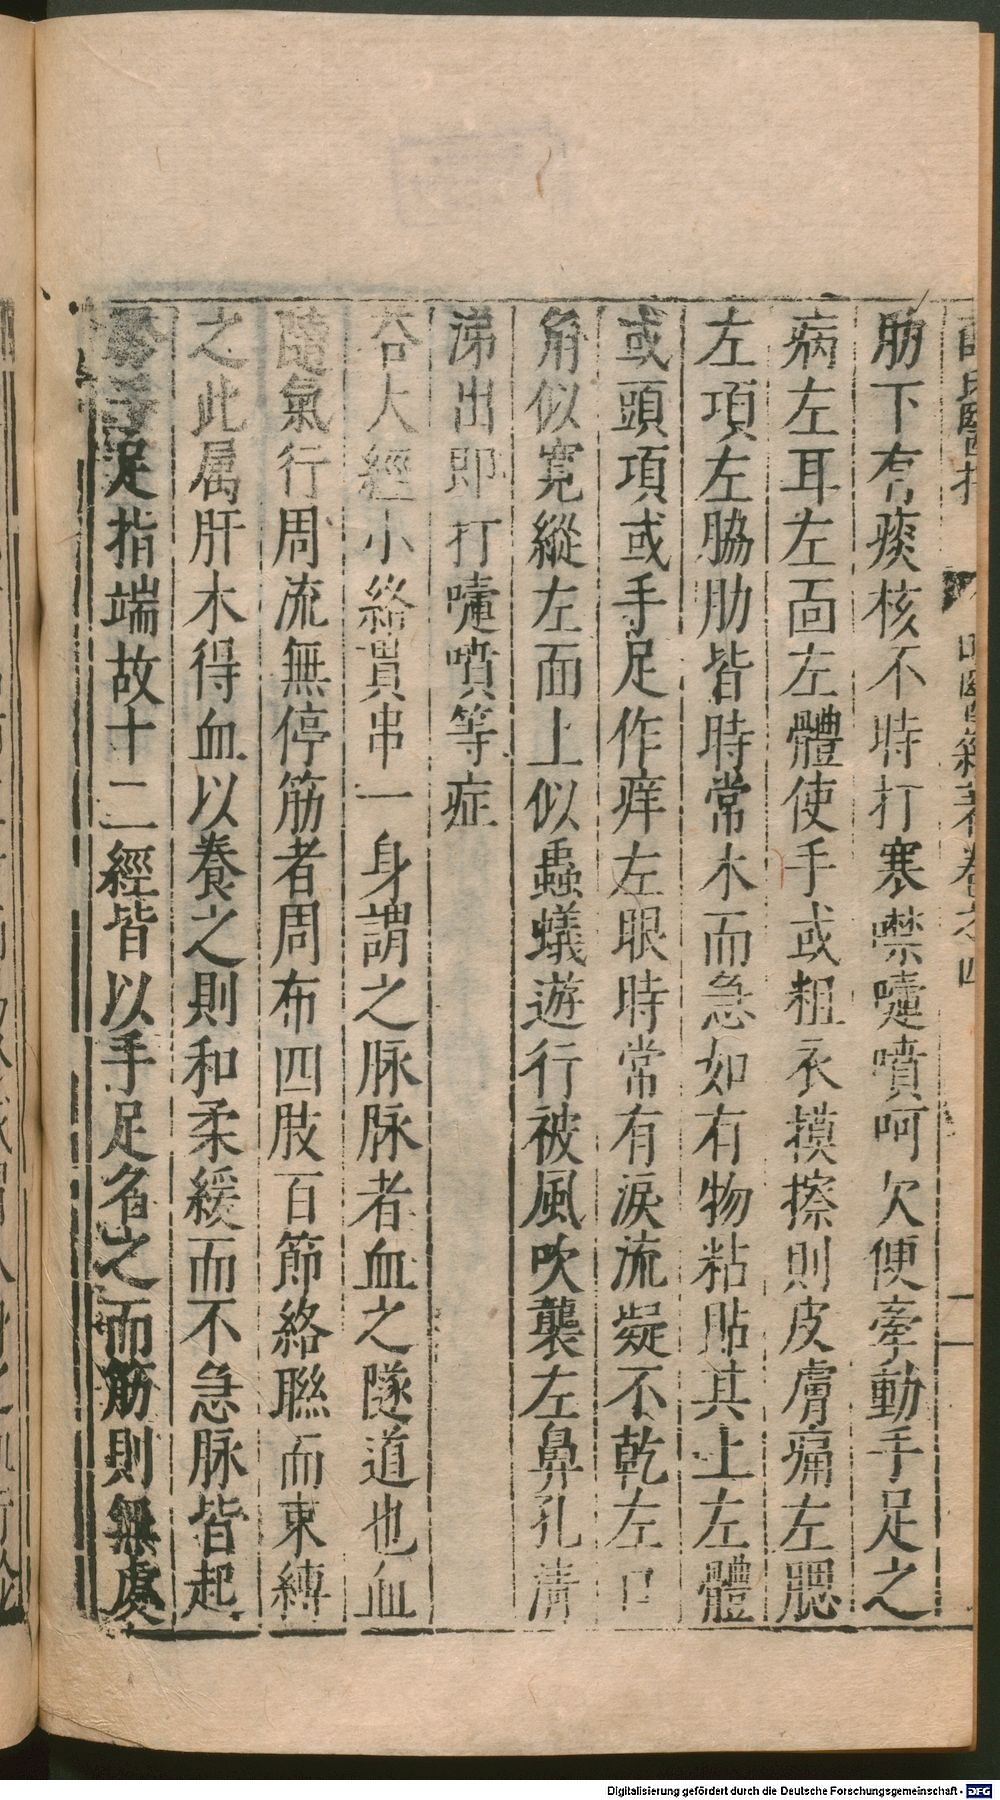 薛氏醫按 明醫雜著卷之四 二
肋下有痰核不時打寒噤嚏噴呵欠便牽動手足之
病左耳左面左體使手或粗衣摸擦則皮膚痛左腮
左項左脇肋皆時常木而急如有物粘貼其上左體
或頭項或手足作痒左眼時常有淚流凝不乾左口
角似寬縱左面上似蟲蟻遊行被風吹襲左鼻孔清
涕出即打嚏噴等症
答大經小絡貫串一身謂之脉脉者血之隧道也血
隨氣行周流無停筋者周布四肢百節絡聯而束縛
之此属肝木得血以養之則和柔緩而不急脉皆起
足指端故十二經皆以手足名之而筋則無處
Digitalisierung gefördert durch die Deutsche Forschungsgemeinschaft - DFG